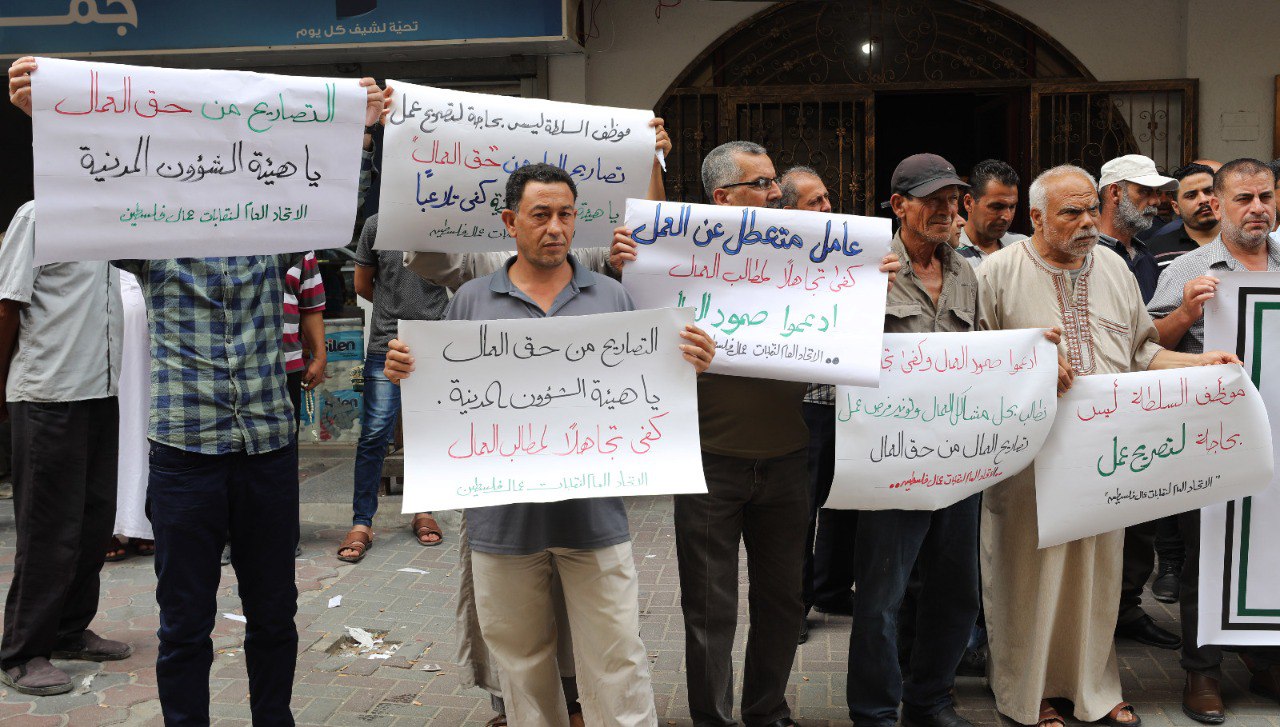 جفـ
تحيّة لشيف كل يوم
التصاريح من حق العمال
يا هيئة الشؤون المدنية
الاتحاد العام لنقابات عمال فلسطين
موظف السلطة ليس بحاجة لتصريح عمل
تصاريح العمل من حق العمال
كفى تلاعباً
نقابات عمال فلسطين
عامل متعطل عن العمل
كفى تجاهلاً لمطالب العمال
ادعموا صمود
الاتحاد العام لنقابات عمال فلسطين..
التصاريح من حق العمال
يا هيئة الشؤون المدنية.
كفى تجاهلاً لمطالب العمال
الاتحاد العام لنقابات عمال فلسطين
ادعموا صمود العمال وكفى
نطالب بحل مشاكل العمال وتوفير فرص عمل
تصاريح العمال من حق العمال
لنقابات عمال فلسطين..
موظف السلطة ليس
بحاجة لتصريح عمل
"الاتحاد العام لنقابات عمال فلسطين"
silen